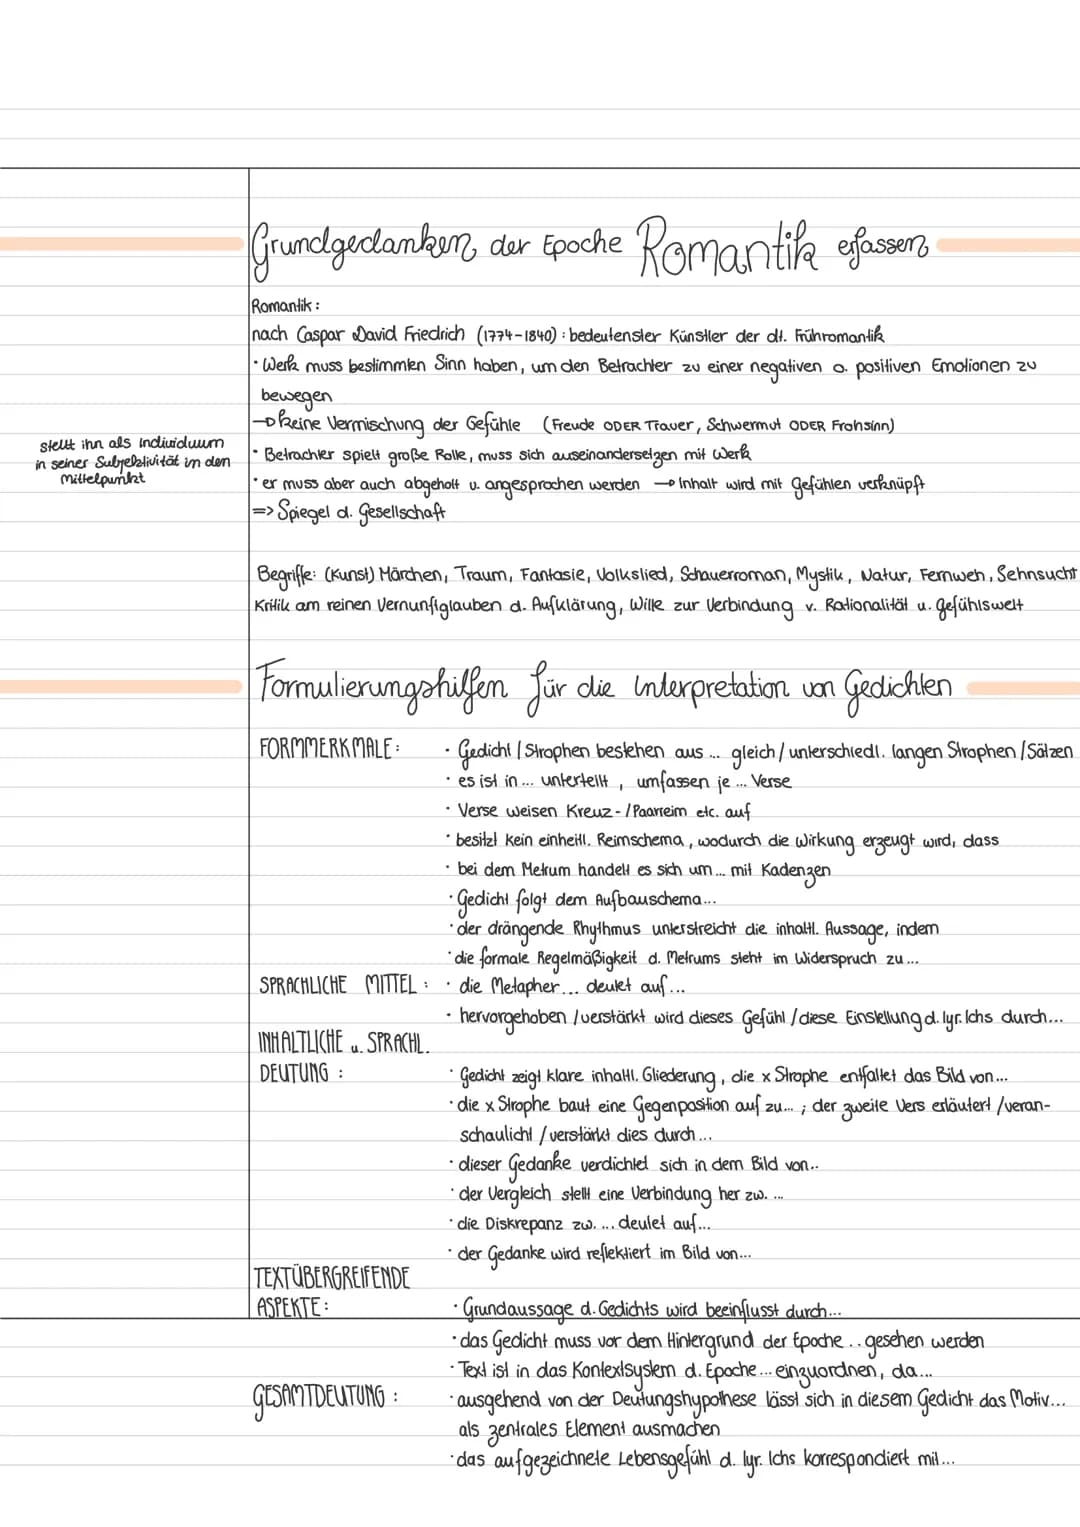 Grundgedanken der Epoche Romantik erfassen
Romantik:
nach Caspar David Friedrich (1774-1840): bedeutenster Künstler der dt. Frühromantik
· Werk muss bestimmten Sinn haben, um den Betrachter zu einer negativen o. positiven Emotionen zu
bewegen
→ keine Vermischung der Gefühle (Freude ODER Trauer, Schwermut ODER Frohsinn)
stellt ihn als Individuum
in seiner Subjektivität in den
Mittelpunkt
· Betrachter spielt große Rolle, muss sich auseinandersetzen mit Werk
· er muss aber auch abgeholt u. angesprochen werden → Inhalt wird mit Gefühlen verknüpft
=> Spiegel d. Gesellschaft
Begriffe: (Kunst) Märchen, Traum, Fantasie, Volkslied, Schauerroman, Mystik, Natur, Fernweh, Sehnsucht
Kritik am reinen Vernunftglauben d. Aufklärung, Wille zur Verbindung v. Rationalität u. Gefühlswelt
Formulierungshilfen für die Interpretation von Gedichten
FORMMERKMALE: · Gedicht / Strophen bestehen aus ... gleich / unterschiedl. langen Strophen / Sätzen
· es ist in ... unterteilt, umfassen je ... Verse
· Verse weisen Kreuz- / Paarreim etc. auf
· besitzt kein einheitl. Reimschema, wodurch die Wirkung erzeugt wird, dass
· bei dem Metrum handelt es sich um ... mit Kadenzen
· Gedicht folgt dem Aufbauschema...
· der drängende Rhythmus unterstreicht die inhaltl. Aussage, indem
· die formale Regelmäßigkeit d. Metrums steht im Widerspruch zu ...
SPRACHLICHE MITTEL: · die Metapher... deutet auf...
· hervorgehoben / verstärkt wird dieses Gefühl / diese Einstellung d. lyr. Ichs durch...
INHALTLICHE u. SPRACHL.
DEUTUNG: · Gedicht zeigt klare inhaltl. Gliederung, die x Strophe entfaltet das Bild von...
· die x Strophe baut eine Gegenposition auf zu...; der zweite Vers erläutert / veran-
schaulicht / verstärkt dies durch...
· dieser Gedanke verdichtet sich in dem Bild von..
· der Vergleich stellt eine Verbindung her zw. ...
· die Diskrepanz zw. ... deutet auf...
· der Gedanke wird reflektiert im Bild von...
TEXTÜBERGREIFENDE
ASPEKTE: · Grundaussage d. Gedichts wird beeinflusst durch...
· das Gedicht muss vor dem Hintergrund der Epoche .. gesehen werden
· Text ist in das Kontextsystem d. Epoche... einzuordnen, da...
GESAMTDEUTUNG: · ausgehend von der Deutungshypothese lässt sich in diesem Gedicht das Motiv...
als zentrales Element ausmachen
· das aufgezeichnete Lebensgefühl d. lyr. Ichs korrespondiert mit...